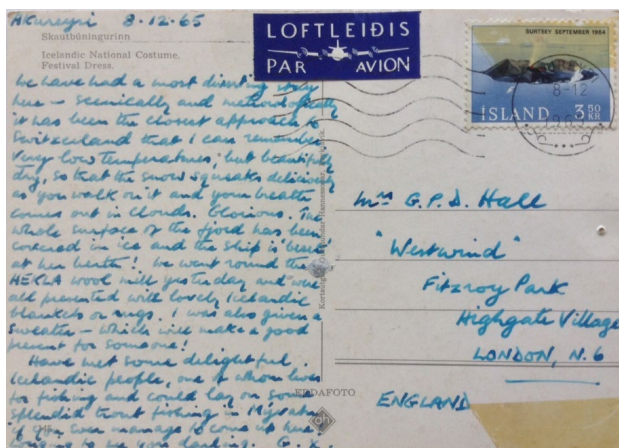 Akureyri 8.12.65
Skautbúningurinn
Icelandic National Costume.
Festival Dress.
We have had a most diverting stay
here – scenically and meteorologically
it has been the closest approach to
Switzerland that I can remember
Very low temperatures, but beautifully
dry, so that the snow squeaks deliciously
as you walk on it and your breath
comes out in clouds. Glorious. The
whole surface of the fjord has been
covered in ice and the ship is 'beset'
at her berth! We went round the
HEKLA wool mill yesterday and were
all presented with lovely Icelandic
blankets or rugs. I was also given a
sweater – which will make a good
present for someone!
Have met some delightful
Icelandic people, one of whom lives
for fishing and could lay on some
splendid trout fishing in Mývatn
if you ever manage to come up here
to see you darling. G. X
LOFTLEIÐIS
PAR AVION
SURTSEY SEPTEMBER 1964
ÍSLAND 3 50 KR
8-12
Mrs G.P.D. Hall
"Westwind"
Fitzroy Park
Highgate Village
LONDON, N.6
ENGLAND
EDDAFOTO